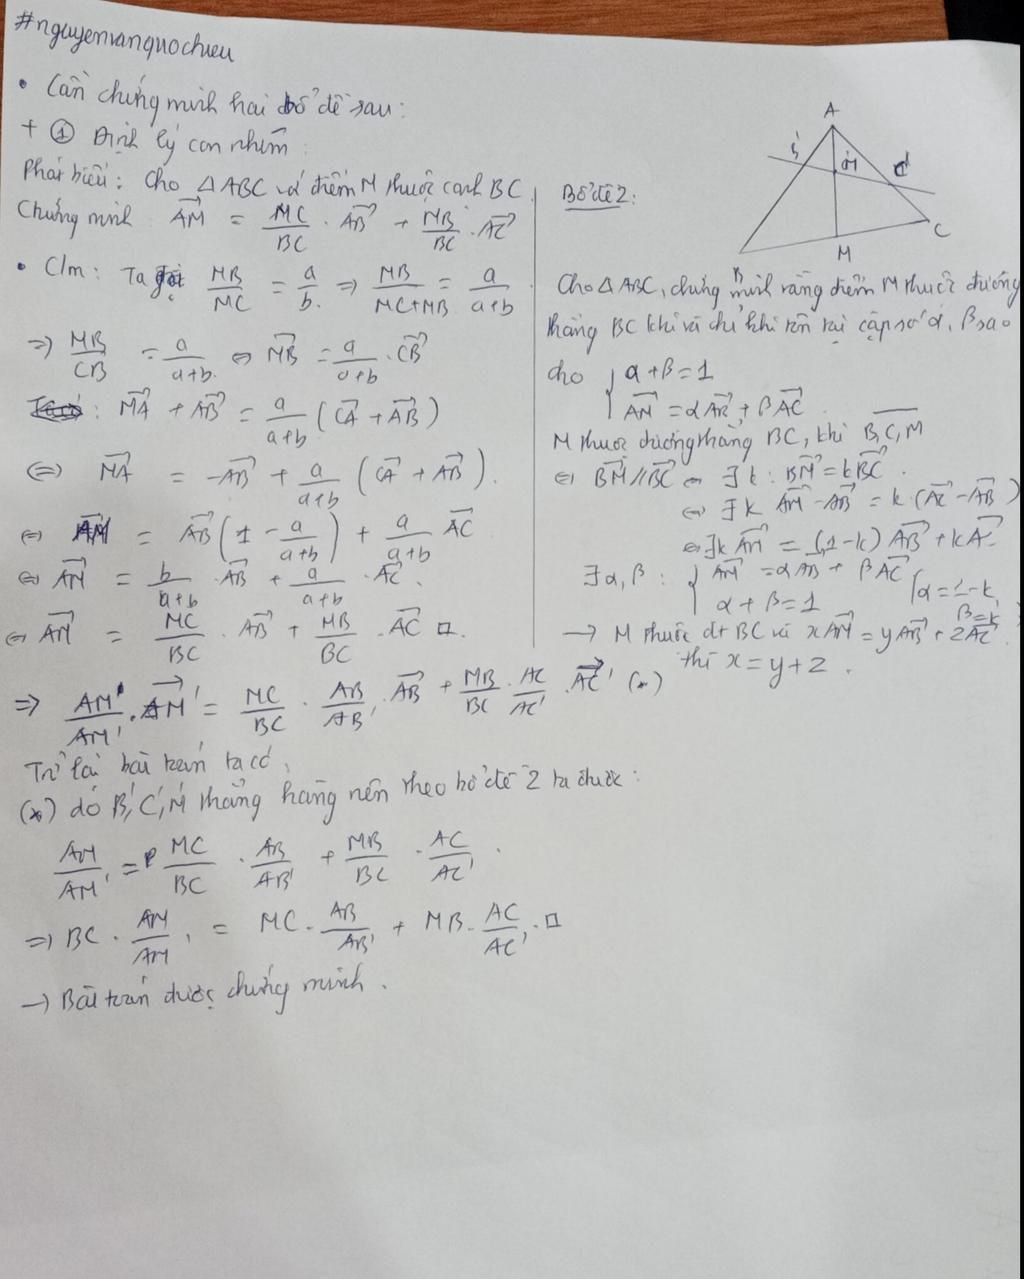 #nguyenvanquochieu
• Cần chứng minh hai bổ đề sau:
+ ① Định lý con nhím
Phát biểu: Cho △ABC và điểm M thuộc cạnh BC.
Chứng minh \vec{AM} = \frac{MC}{BC} . \vec{AB} + \frac{MB}{BC} . \vec{AC}
• C/m: Ta gọi \frac{MB}{MC} = \frac{a}{b} ⇒ \frac{MB}{MC+MB} = \frac{a}{a+b}
⇒ \frac{MB}{CB} = \frac{a}{a+b} ⇔ \vec{MB} = \frac{a}{a+b} . \vec{CB}
: \vec{MA} + \vec{AB} = \frac{a}{a+b} (\vec{CA} + \vec{AB})
⇔ \vec{MA} = -\vec{AB} + \frac{a}{a+b} (\vec{CA} + \vec{AB}).
⇔ \vec{AM} = \vec{AB} (1 - \frac{a}{a+b}) + \frac{a}{a+b} \vec{AC}
⇔ \vec{AM} = \frac{b}{a+b} . \vec{AB} + \frac{a}{a+b} . \vec{AC}.
⇔ \vec{AM} = \frac{MC}{BC} . \vec{AB} + \frac{MB}{BC} . \vec{AC} □.
A
B'
M'
C'
C
M
B
Bổ đề 2:
Cho △ABC, chứng minh rằng điểm M thuộc đường
thẳng BC khi và chỉ khi tồn tại cặp số α, β sao
cho { α + β = 1
\vec{AM} = α\vec{AB} + β\vec{AC}
M thuộc đường thẳng BC, khi \overline{B,C,M}
⇔ \vec{BM} // \vec{BC} ⇔ ∃k : \vec{BM} = k\vec{BC}.
⇔ ∃k \vec{AM} - \vec{AB} = k.(\vec{AC} - \vec{AB})
⇔ ∃k \vec{AM} = (1-k) \vec{AB} + k\vec{AC}
∃α, β : { \vec{AM} = α\vec{AB} + β\vec{AC}
α + β = 1
{ α = 1-k
β = k
→ M thuộc đt BC và x\vec{AM} = y\vec{AB} + z\vec{AC}
thì x = y + z.
⇒ \frac{AM}{AM'} . \vec{AM'} = \frac{MC}{BC} . \frac{AB}{AB'} . \vec{AB'} + \frac{MB}{BC} . \frac{AC}{AC'} . \vec{AC'} (*)
Trở lại bài toán ta có,
(*) do B',C',M' thẳng hàng nên theo bổ đề 2 ta được:
\frac{AM}{AM'} = \frac{MC}{BC} . \frac{AB}{AB'} + \frac{MB}{BC} . \frac{AC}{AC'} .
⇒ BC . \frac{AM}{AM'} = MC . \frac{AB}{AB'} + MB . \frac{AC}{AC'} . □
→ Bài toán được chứng minh.